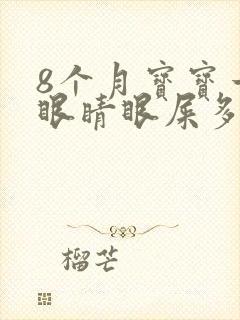 8个月宝宝
眼睛眼屎多
榴芒